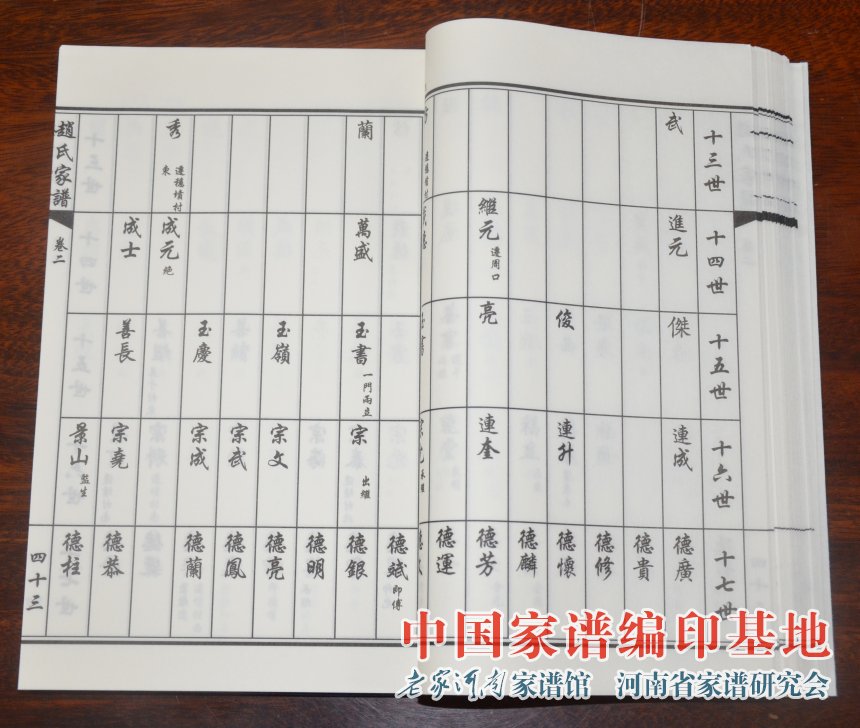 十三世
武
蘭
秀 遷穗墳村東
十四世
進元
繼元 遷周口
萬盛
成元 绝
成士
十五世
傑
俊
亮
玉書 一門兩立
玉嶺
玉慶
善長
十六世
連成
連升
連奎
宗 出繼
宗文
宗武
宗成
宗堯
景山 監生
十七世
德廣
德貴
德修
德懷
德麟
德芳
德運
德斌 即傅
德銀
德明
德亮
德鳳
德蘭
德恭
德柱
趙氏家譜
卷二
四十三
中国家谱编印基地
老家河南家谱馆 河南省家谱研究会